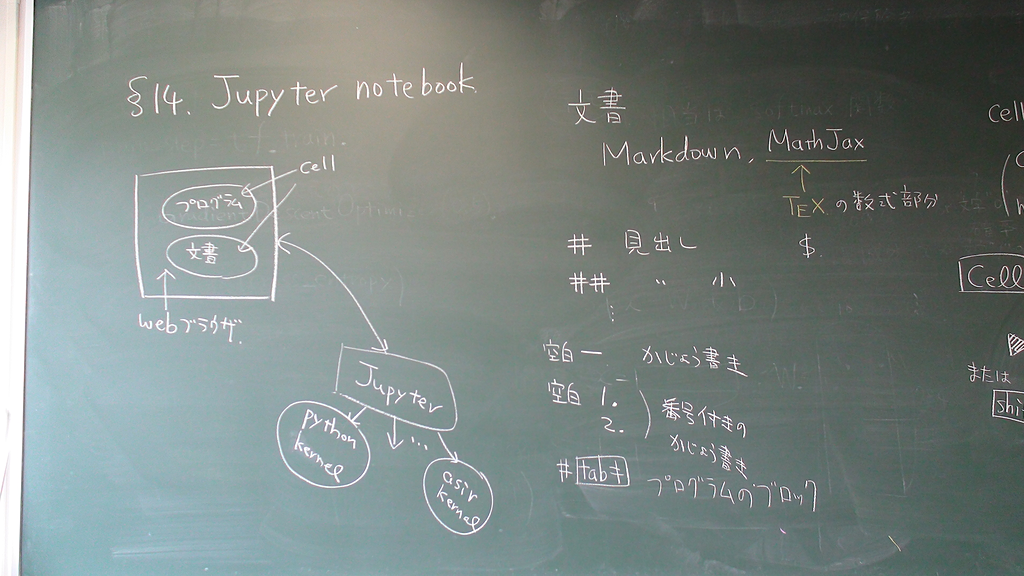 §14. Jupyter notebook
cell
プログラム
文書
webブラウザ.
Jupyter
python
kernel
...
asir
kernel
文書
Markdown, MathJax
TEX の数式部分
# 見出し $
## 〃 小
空白 ー かじょう書き
空白 1.
2.
番号付きの
かじょう書き
# tabキ プログラムのブロック
cell
Cell
または
shi